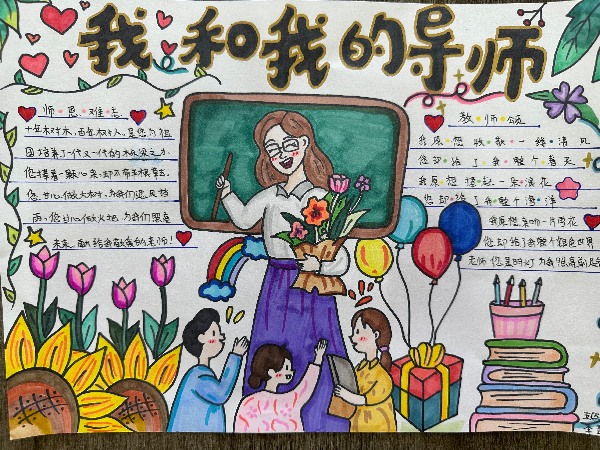 我和我的导师
师恩难忘
十年树木,百年树人,是您为祖
国培养了一代又一代的栋梁之才。
您捧着一颗心来,却不带半根草去。
您甘心做大树,为我们遮风挡
雨,您甘心做火把,为我们照亮
未来,献给我敬爱的老师!
教师颂
我原想收获一缕清风
您却给了我整个春天
我原想捧起一朵浪花
您却给了我整个海洋
我原想亲吻一片雪花
您却给了我整个银色世界
老师 您是的灯 为我